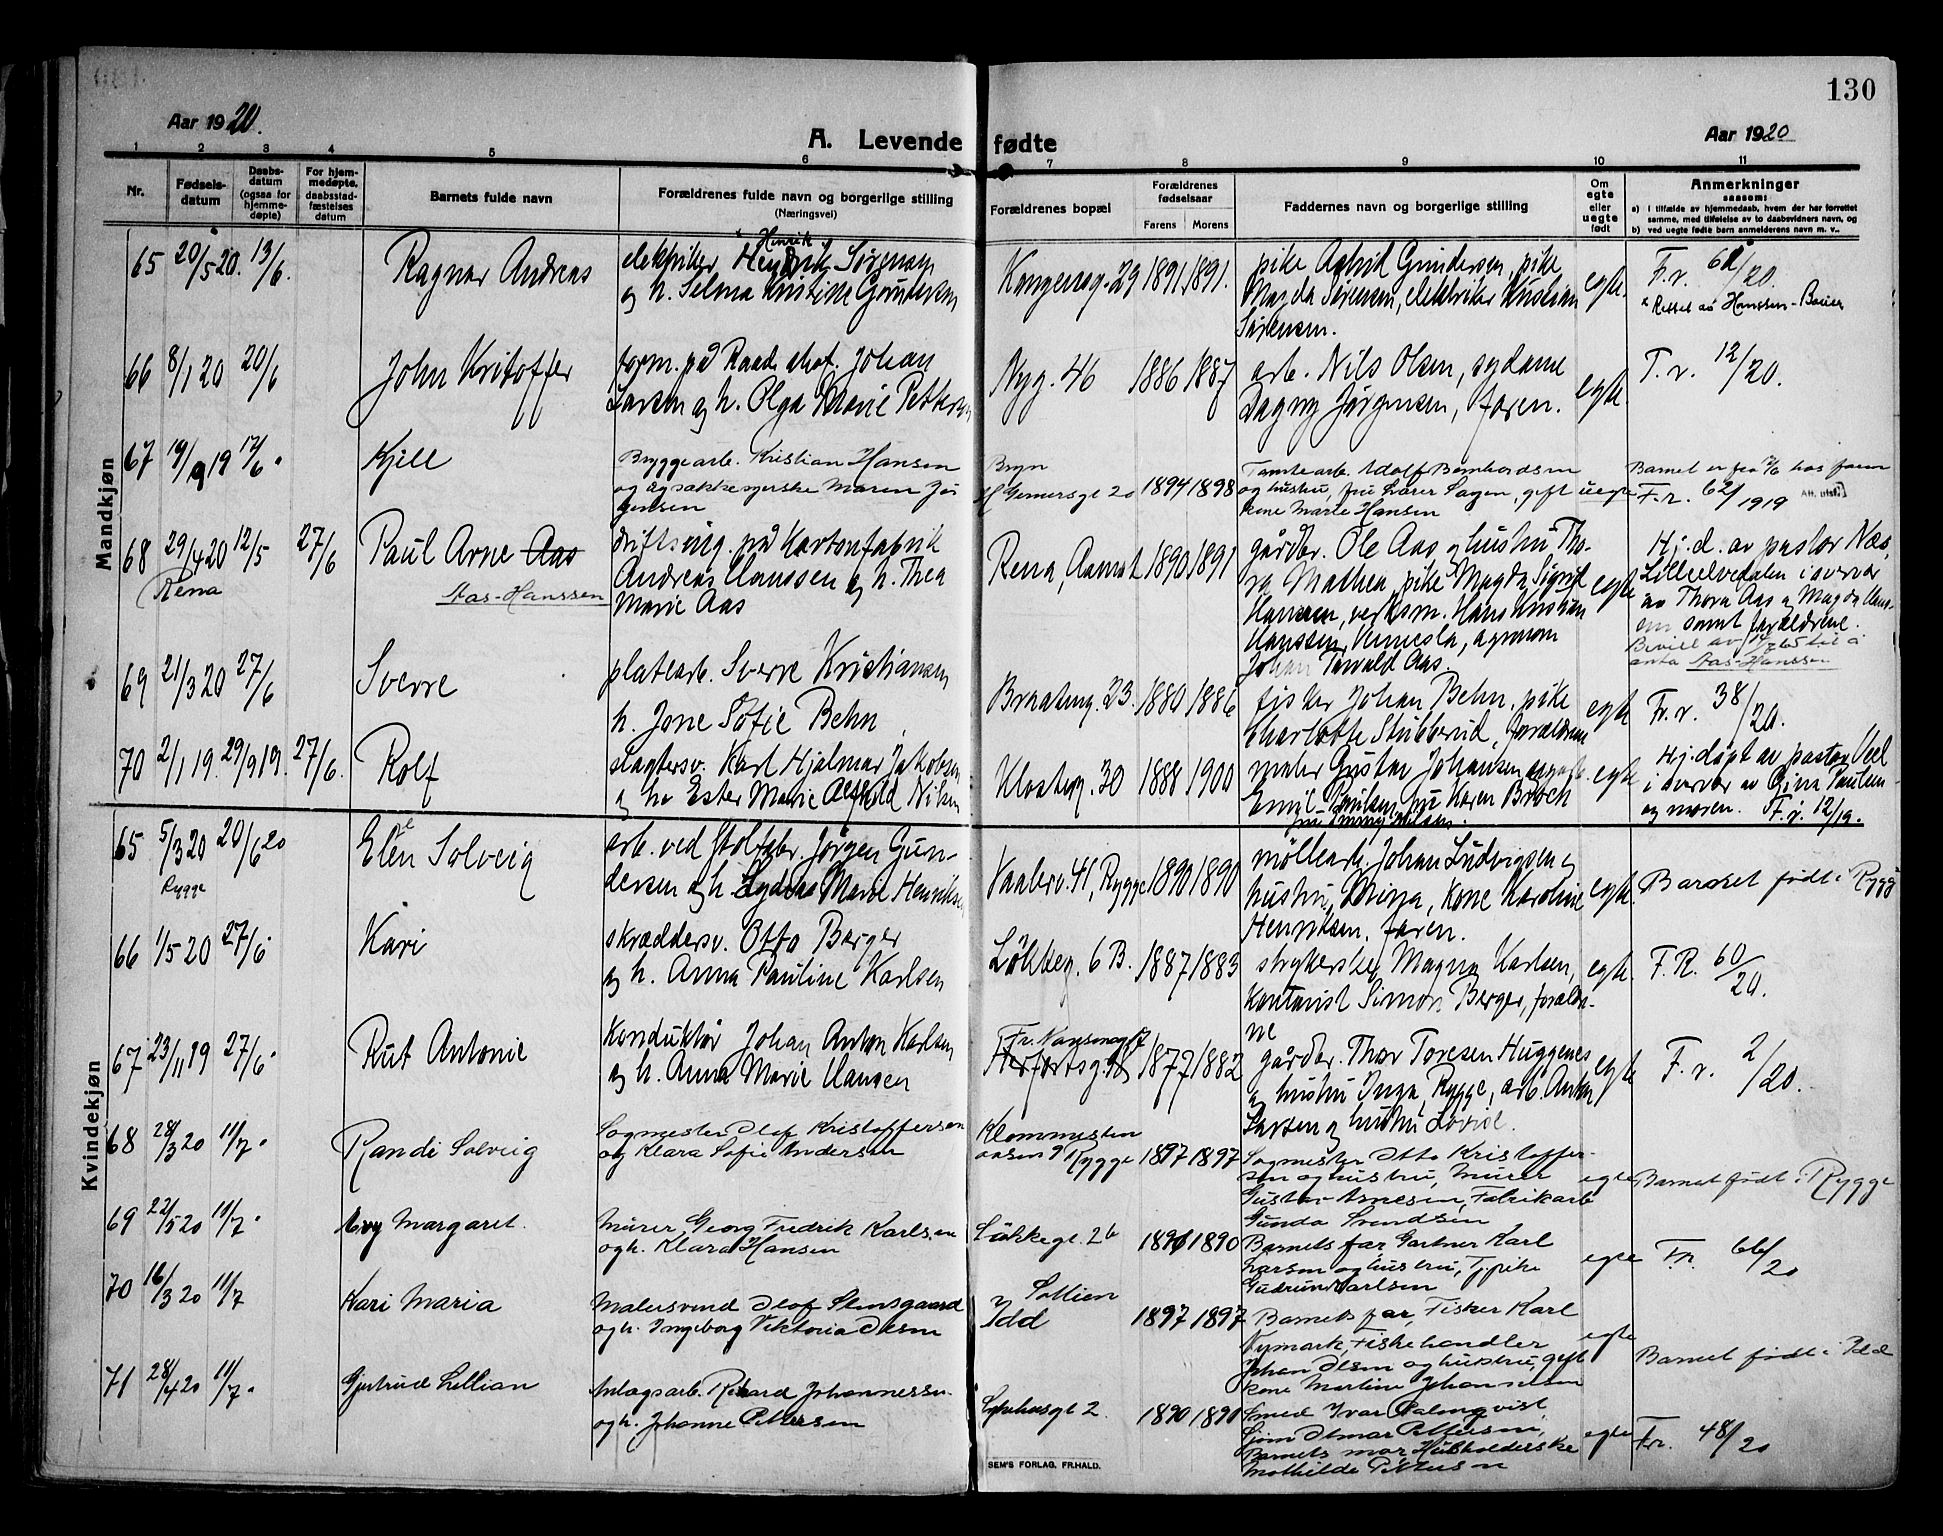 130
Aar 1920.
A. Levende fødte
Aar 1920
1 2 3 4 5 6 7 8 9 10 11
Nr.
Fødsels-
datum
Daabs-
datum
(ogsaa for
hjemme-
døpte)
For hjem-
medøpte,
daabsstad-
fæstelses
datum
Barnets fulde navn
Forældrenes fulde navn og borgerlige stilling
(Næringsvei)
Forældrenes bopæl
Forældrenes
fødselsaar
Farens Morens
Faddernes navn og borgerlige stilling
Om
egte
eller
uegte
født
Anmerkninger
saasom:
a) i tilfælde av hjemmedaab, hvem der har forrettet
samme, med tilføielse av to daabsvidners navn, og
b) ved uegte fødte barn anmelderens navn m. v..
Mandkjøn
65 20/5 20. 13/6. Ragnar Andreas
elektriker Henrik Sørensen
og h. Selma Kristine Gundersen
Kongensg. 29 1891 1891.
pike Astrid Gundersen, pike
Magda Sørensen, elektriker Kristian
Sørensen.
egte.
F.r. 62/20.
x Rettet av Hanssen-Bauer
66 8/1 20 20/6 John Kristoffer
form. på Raade Johan
Larsen og h. Olga Marie Pettersen
Nyg. 46 1886 1887
arb. Nils Olsen, sydame
Dagny Jørgensen, faren.
egte.
F.r. 12/20.
67 19/9 19 17/6. Kjell
Bryggearb. Kristian Hansen
og sækkesyerske Maren Jør
gensen
Bryn
H. Gernersgt 20 1894 1898
Tomtearb. Adolf Bernhardsen
og hustru, fru Sagen, gift
kone Marie Hansen
uegte
Barnet er fra hos faren
F.r. 62/1919 Att. utst.
68 29/4 20 12/5 27/6 Paul Arne Aas
Rena
Aas-Hanssen
driftsing. på Kartonfabrik
Andreas Hanssen og h. Thea
Marie Aas
Rena, Aamot 1890 1891
gårdbr. Ole Aas og hustru Tho-
ra Mathea, pike Magda Sigrid
Hanssen, verksm. Hans Kristian
Hanssen, Vennesla, agronom
Johan Aas.
egte
Hj. d. av pastor Næs,
Lilleelvedalen i overvær
av Thora Aas og Magda Hans-
sen samt forældrene.
Bevill av 14/7 65 til å
anta Aas-Hanssen
69 21/3 20 27/6 Sverre
platearb. Sverre Kristiansen
h. Jone Sofie Behn
Braateng. 23. 1880 1886
fisker Johan Behn, pike
Charlotte Stubberud, forældrene
egte
Fr. r. 38/20.
70 2/1 19. 29/9 19. 27/6. Rolf
slagtersv. Karl Hjalmar Jakobsen
og h. Ester Marie Alfhild Nilsen
Klosterg. 30 1888 1900
maler Gustav Johansen
Emil Paulsen, fru Karen Broch
egte
Hj. døpt av pastor
i overvær av Gina Paulsen
og moren. F.r. 12/19.
Kvindekjøn
65 5/3 20 20/6 20 Elen Solveig
Rygge
arb. ved Stolfabr. Jørgen Gun-
dersen og h. Lydia Marie Henriksen
Vaalerv. 41, Rygge 1890 1890
møllearb. Johan Ludvigsen og
hustru Minna, kone Karoline
Henriksen, faren.
egte.
Barnet født i Rygge
66 1/5 20 27/6 Kari
skræddersv. Otto Berger
og h. Anna Pauline Karlsen
Løkkeg. 6 B. 1887 1883
strykerske Magna Karlsen,
kontorist Simon Berger, forældre-
ne
egte.
F.R. 60/20.
67 23/11 19 27/6. Rut Antonie
Konduktør Johan Anton Karlsen
og h. Anna Marie Hansen
Fr. Nansensg. 17
1877 1882
gårdbr. Thor Toresen Huggenes
og hustru Inga, Rygge, arb. Anton
Larsen og hustru Lovise.
egte
F.r. 2/20.
68 28/3 20 11/7. Randi Solveig
Sagmester Olof Kristoffersen
og Klara Sofie Andersen
Klommesten
aasen 9 Rygge 1897 1897
Sagmester Otto Kristoffer-
sen og hustru, murer
Gustav Arnesen, Fabrikarb
Gunda Svendsen
egte
Barnet født i Rygge
69 22/5 20 11/7. Evy Margaret.
Murer Georg Fredrik Karlsen
og h. Klara Hansen
Løkkegt. 2b 1896 1890
Barnets far, Gartner Karl
Larsen og hustru, Tj.pike
Gudrun Karlsen
egte
Fr. 66/20
70 16/3 20 11/7 Kari Maria
Malersvend Olof Stensgaard
og h. Ingeborg Viktoria Olsen
Sollien
Idd 1897 1897
Barnets far, Fisker Karl
Nymark, Fiskehandler
Johan Olsen og hustru, gift
kone Martine Johannesen
egte
Barnet født i Idd
71 28/4 20 11/7. Gjertrud Lillian
Anlægsarb. Rikard Johannessen
og h. Johanne Pettersen
gt 2. 1890 1890
Smed Ivar Palmqvist,
Sjøm Otmar Pettersen,
Barnets mor, Husholderske
Mathilde Pettersen
egte
Fr. 48/20
SEM'S FORLAG, FR.HALD.